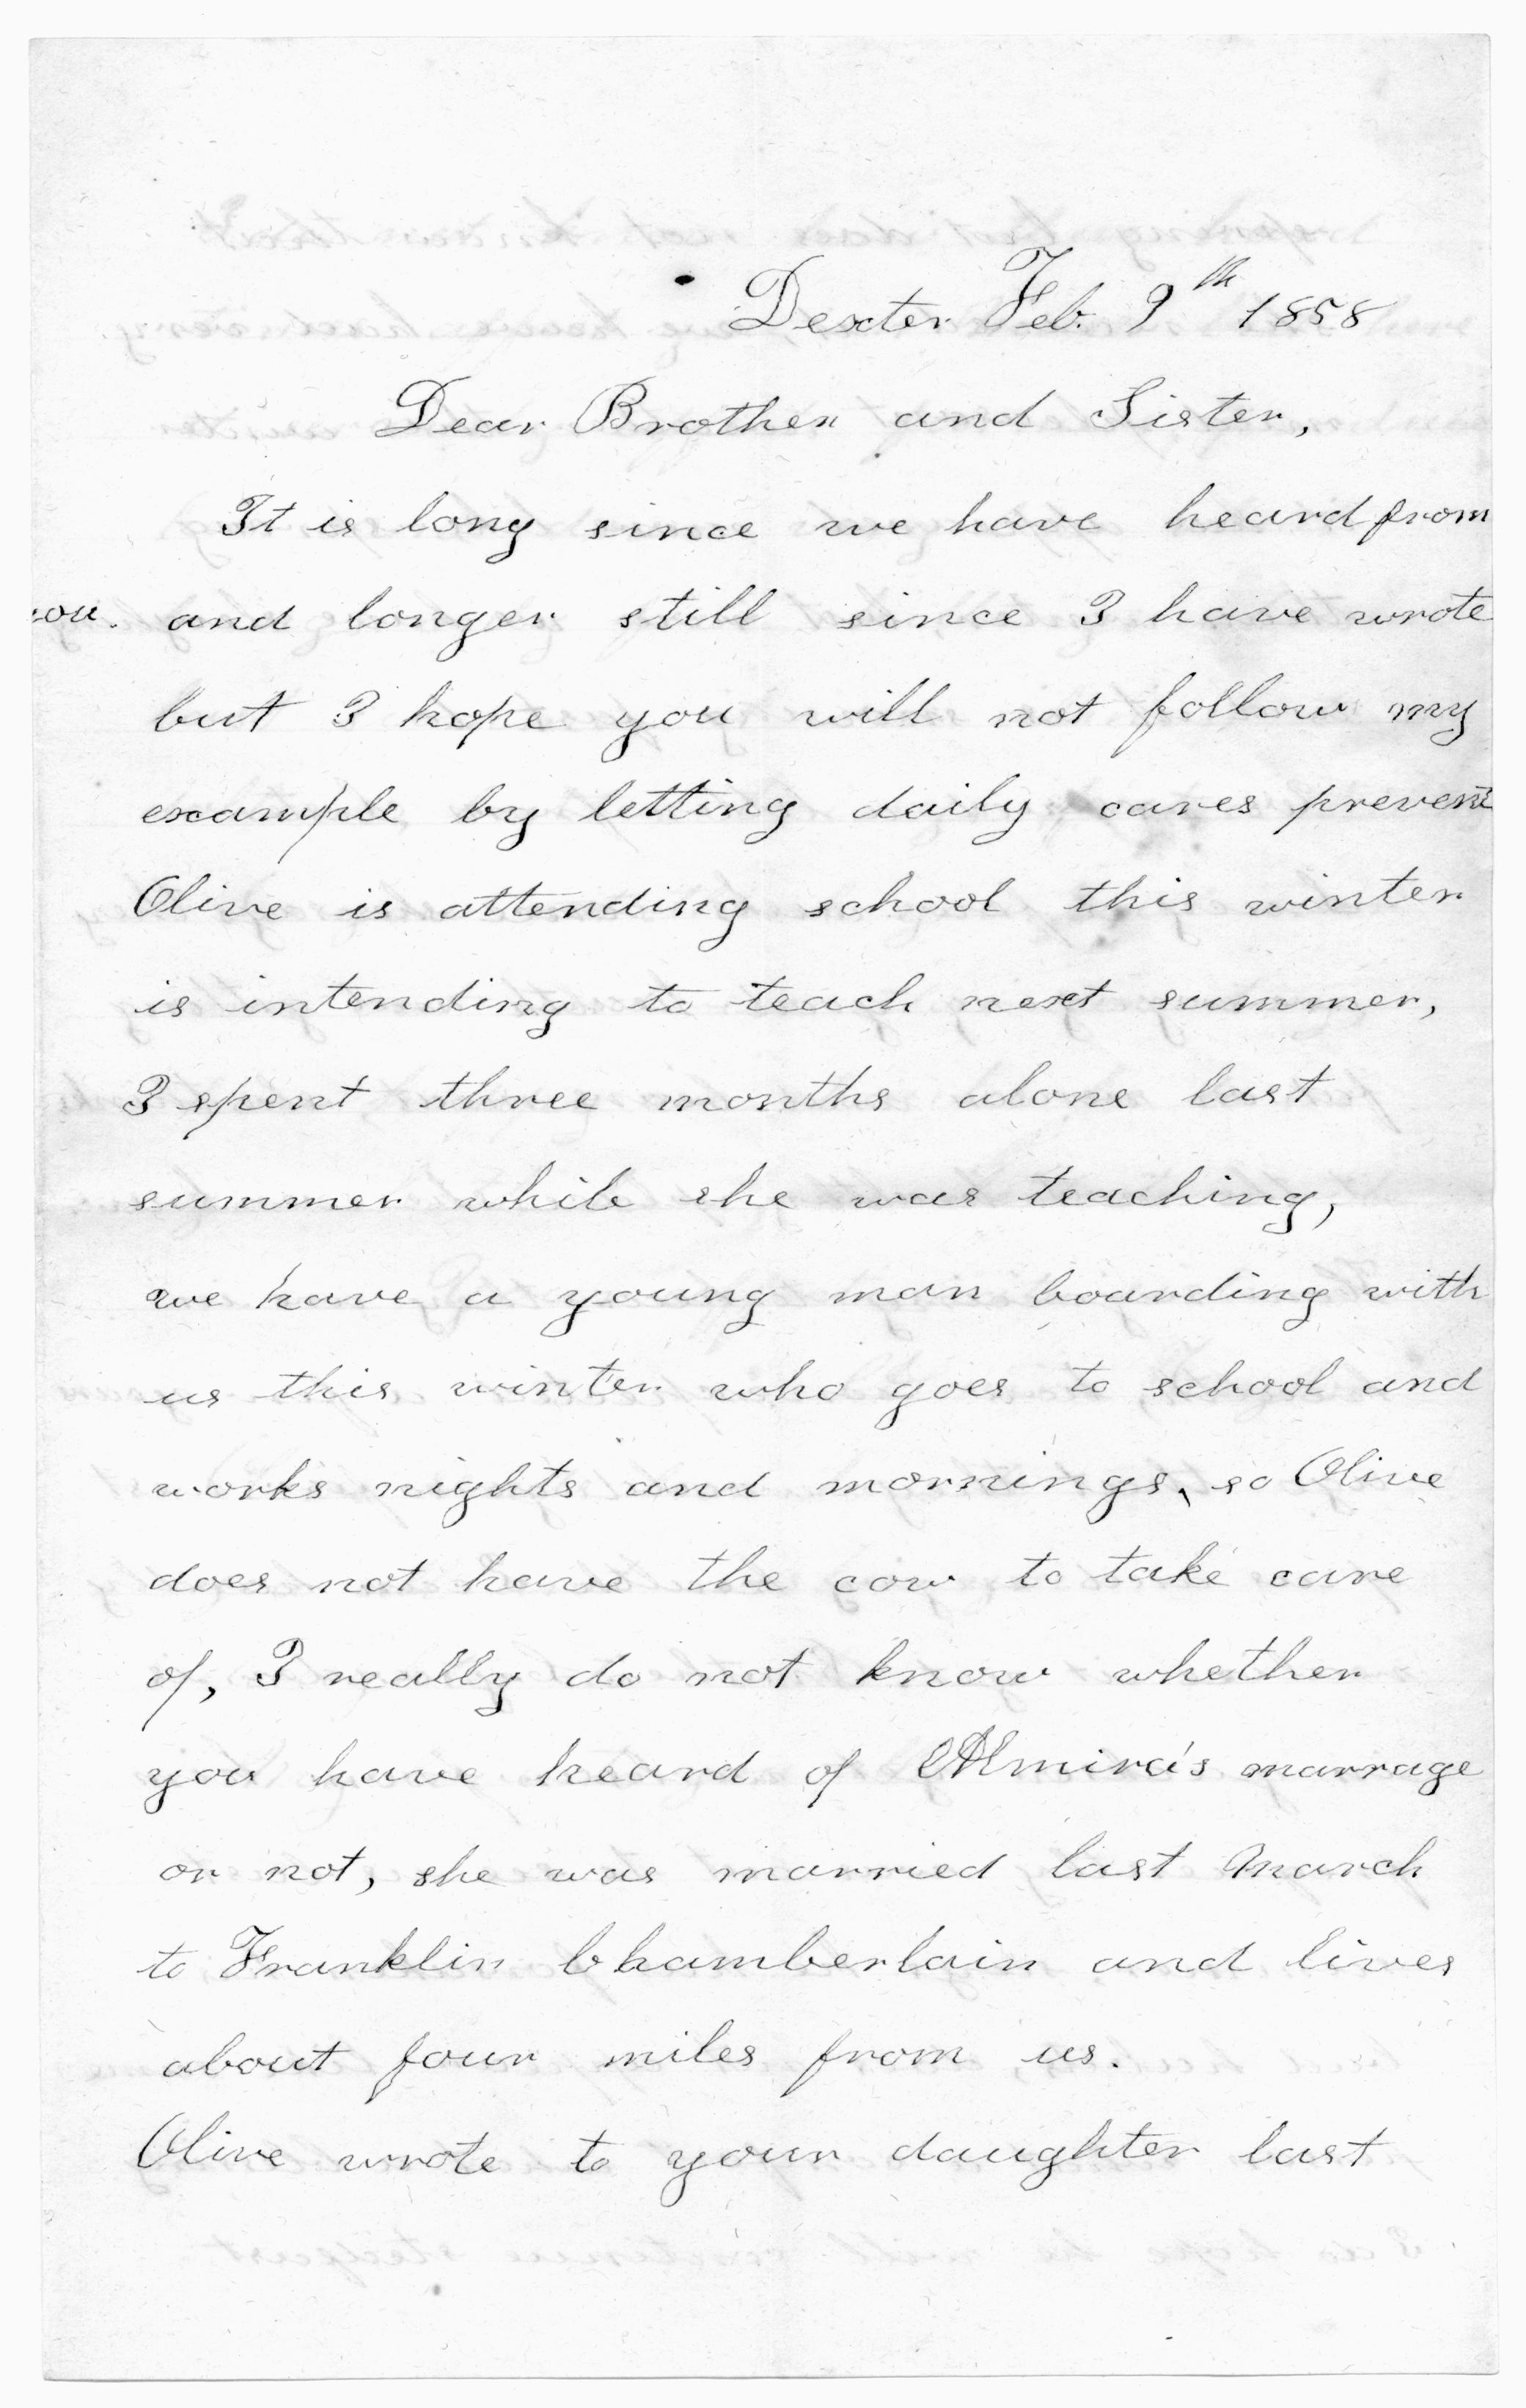 Dexter Feb. 9th 1858
Dear Brother and Sister,
It is long since we have heard from
you. and longer still since I have wrote
but I hope you will not follow my
example by letting daily cares prevent
Olive is attending school this winter
is intending to teach next summer,
I spent three months alone last
summer while she was teaching,
we have a young man boarding with
us this winter who goes to school and
works nights and mornings, so Olive
does not have the cow to take care
of, I really do not know whether
you have heard of Almira's marrage
or not, she was married last March
to Franklin Chamberlain and lives
about four miles from us.
Olive wrote to your daughter last